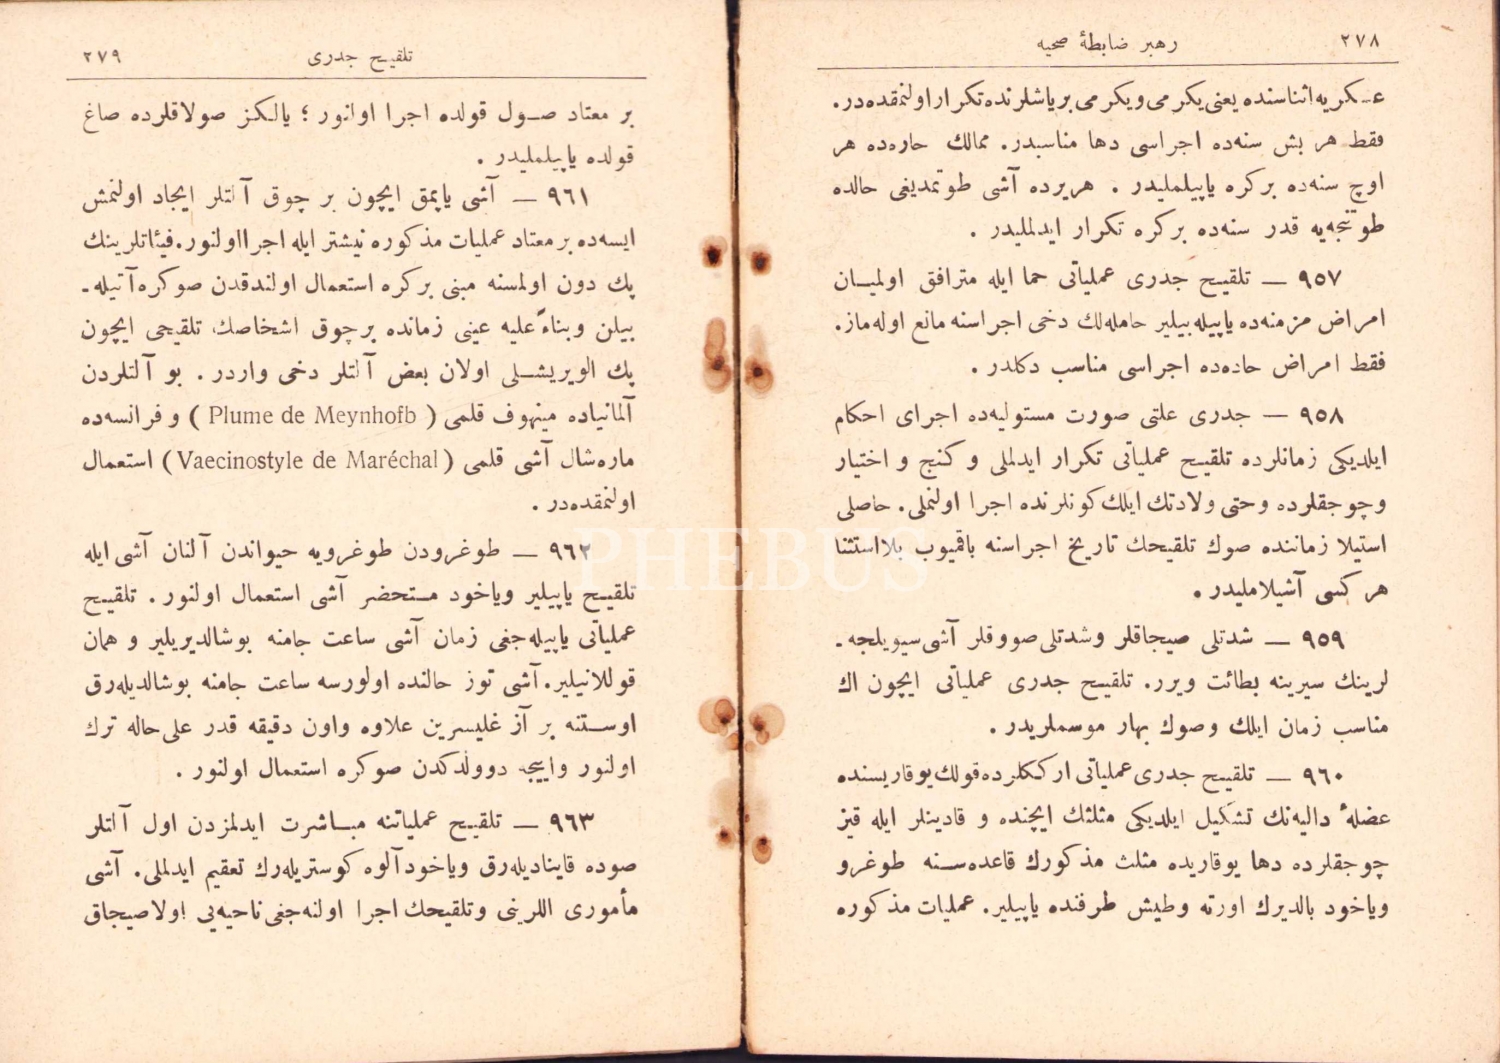 ٢٧٨
رهبر ضابطهٔ صحیه
عسكريه اثناسنده يعنى يكرمى ويكرمى بر ياشلرنده تكرار اولنمقده‌در.
فقط هر بش سنه‌ده اجراسى دها مناسبدر. ممالك حاره‌ده هر
اوچ سنه‌ده بركره ياپيلمليدر . هريرده آشى طوتمديغى حالده
طوتنجه‌يه قدر سنه‌ده بركره تكرار ايدلمليدر .
٩٥٧ — تلقيح جدرى عملياتى حما ايله مترافق اولميان
امراض مزمنه‌ده ياپيله‌بيلير حامله‌لك دخى اجراسنه مانع اوله‌ماز.
فقط امراض حاده‌ده اجراسى مناسب دكلدر .
٩٥٨ — جدرى علتى صورت مستوليه‌ده اجراى احكام
ايلديكى زمانلرده تلقيح عملياتى تكرار ايدلملى و كنج و اختيار
وچوجقلرده وحتى ولادتك ايلك كونلرنده اجرا اولنملى. حاصلى
استيلا زماننده صوك تلقيحك تاريخ اجراسنه باقميوب بلااستثنا
هر كسى آشيلامليدر .
٩٥٩ — شدتلى صيجاقلر وشدتلى صووقلر آشى سيويلجه‌ـ
لرينك سيرينه بطائت ويرر. تلقيح جدرى عملياتى ايچون اك
مناسب زمان ايلك وصوك بهار موسملريدر .
٩٦٠ — تلقيح جدرى عملياتى ارككلرده قولك يوقاريسنده
عضلهٔ داليه‌نك تشكيل ايلديكى مثلثك ايچنده و قادينلر ايله قيز
چوجقلرده دها يوقاريده مثلث مذكورك قاعده‌سنه طوغرو
وياخود بالديرك اورته وطيش طرفنده ياپيلير. عمليات مذكوره
تلقيح جدرى
٢٧٩
بر معتاد صول قولده اجرا اولنور ؛ يالكز صولاقلرده صاغ
قولده ياپيلمليدر .
٩٦١ — آشى ياپمق ايچون بر چوق آلتلر ايجاد اولنمش
ايسه‌ده بر معتاد عمليات مذكوره نيشتر ايله اجرا اولنور. فيئاتلرينك
پك دون اولمسنه مبنى بركره استعمال اولندقدن صوكره آتيله‌ـ
بيلن وبناءً عليه عينى زمانده برچوق اشخاصك تلقيحى ايچون
پك الويريشلى اولان بعض آلتلر دخى واردر. بو آلتلردن
آلمانياده مينهوف قلمى ( Plume de Meynhofb ) و فرانسه‌ده
ماره‌شال آشى قلمى ( Vaecinostyle de Maréchal ) استعمال
اولنمقده‌در .
٩٦٢ — طوغرودن طوغرويه حيواندن آلنان آشى ايله
تلقيح ياپيلير وياخود مستحضر آشى استعمال اولنور . تلقيح
عملياتى ياپيله‌جغى زمان آشى ساعت جامنه بوشالديريلير و همان
قوللانيلير. آشى توز حالنده اولورسه ساعت جامنه بوشالديله‌رق
اوستنه بر آز غليسرين علاوه واون دقيقه قدر على حاله ترك
اولنور واييجه دوولدكدن صوكره استعمال اولنور .
٩٦٣ — تلقيح عملياتنه مباشرت ايدلمزدن اول آلتلر
صوده قايناديله‌رق وياخود آلوه كوستريله‌رك تعقيم ايدلملى. آشى
مأمورى اللرينى وتلقيحك اجرا اولنه‌جغى ناحيه‌يى اولا صيجاق
PHEBUS